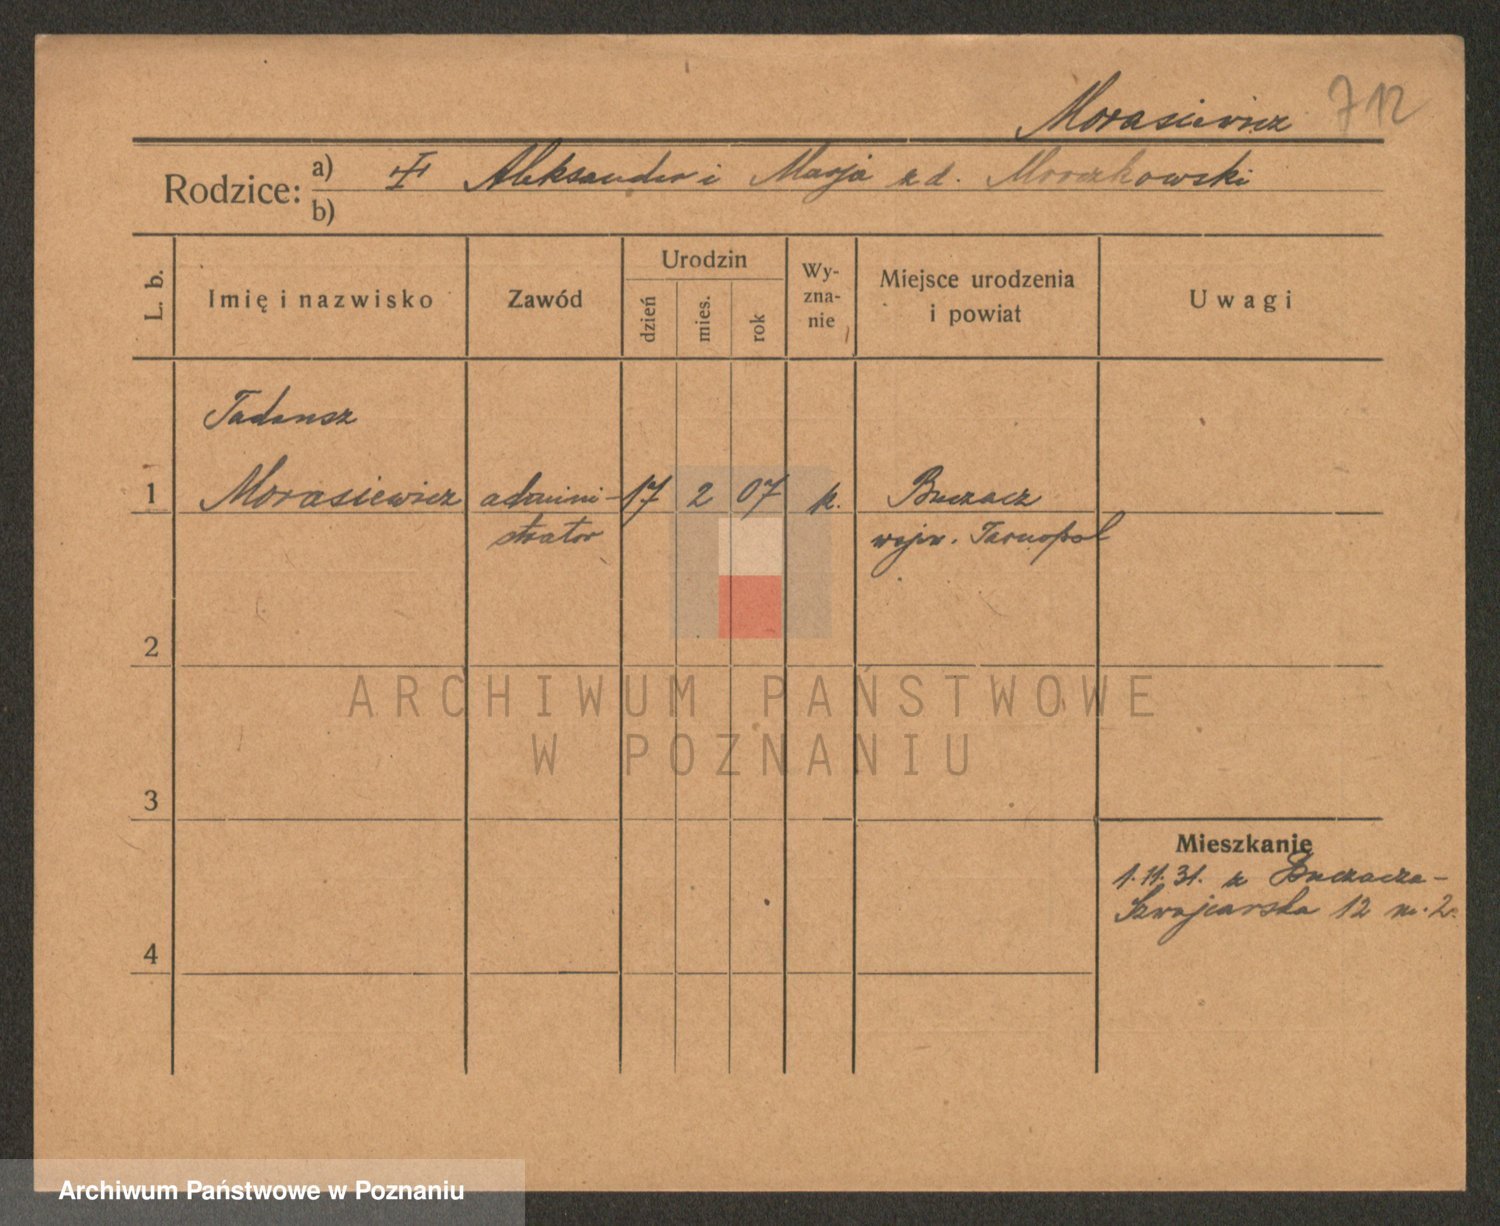 Morasiewicz 712
Rodzice: a) Aleksander i Marja z d.
b)
L. b. Imię i nazwisko Zawód Urodzin Wy-
zna-
nie Miejsce urodzenia
i powiat Uwagi
dzień mies. rok
Tadeusz
1 Morasiewicz admini- 17 2 07 k. Buczacz
strator wojew. Tarnopol
2
ARCHIWUM PAŃSTWOWE
W POZNANIU
3
Mieszkanie
1.11.31. z Buczacza-
Szwajcarska 12 m. 2.
4
Archiwum Państwowe w Poznaniu